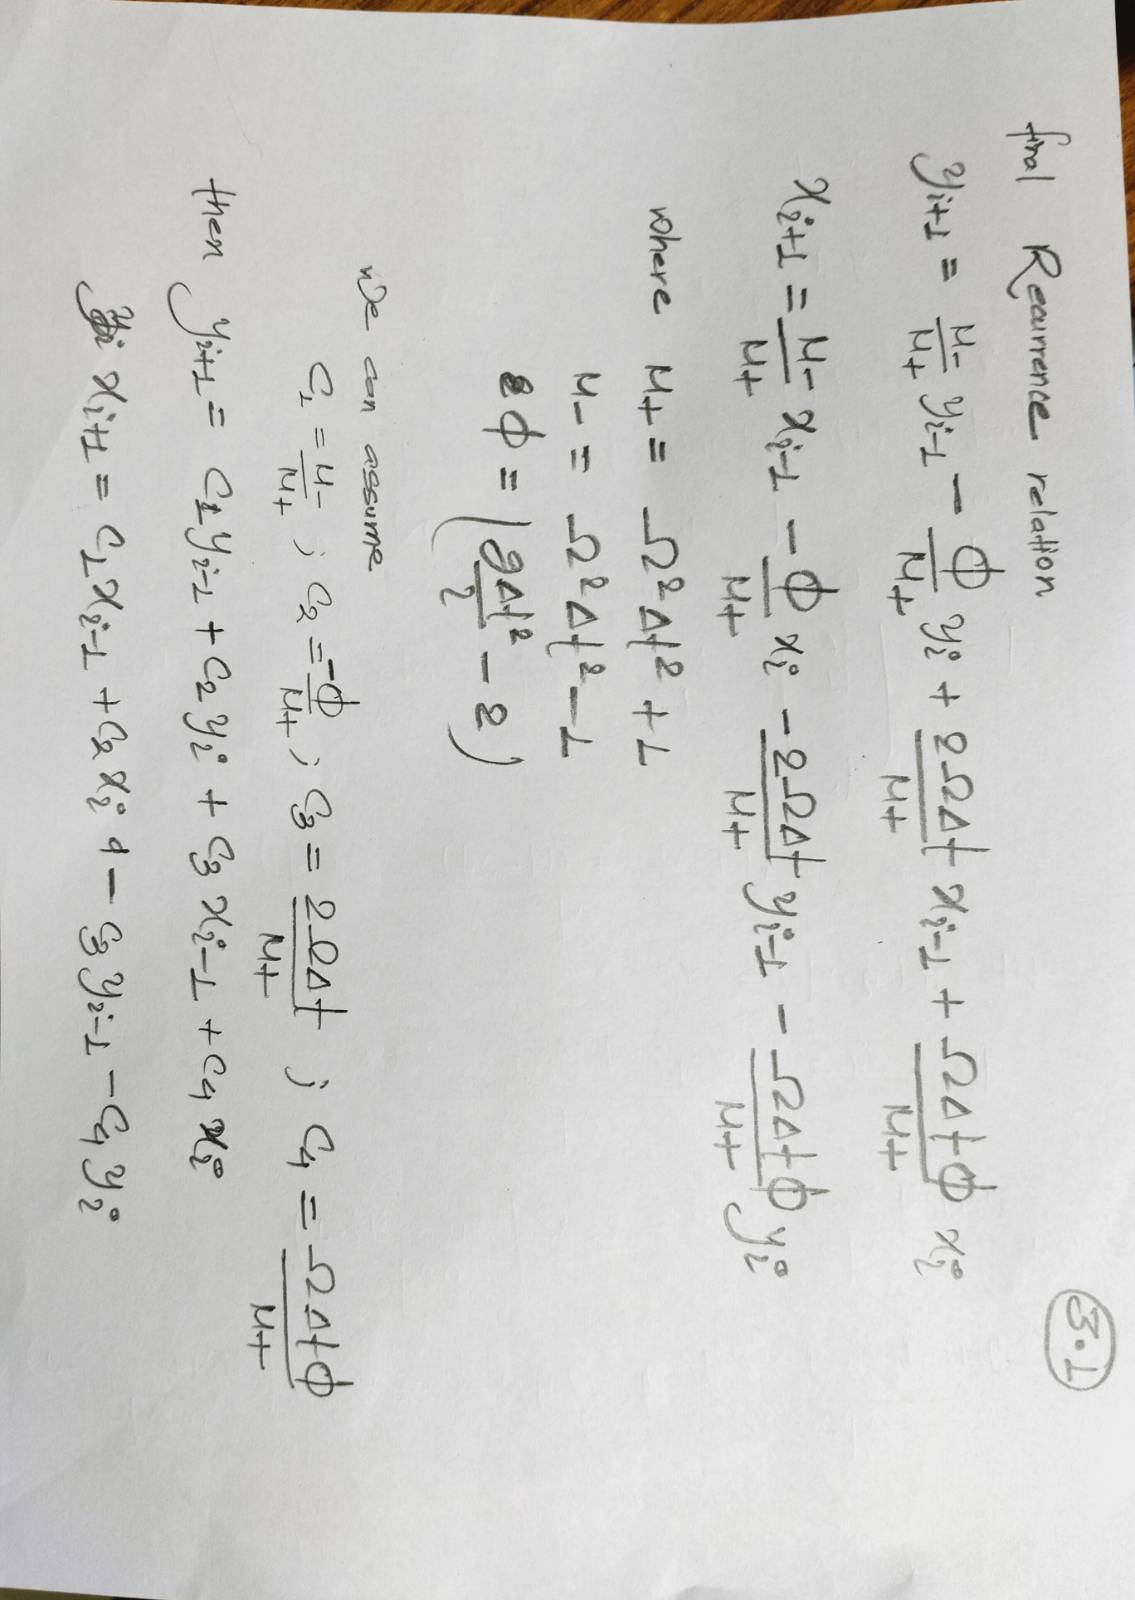 3.1
final Recurrence relation
y_{i+1} = μ-/μ+ y_{i-1} - ϕ/μ+ y_i + 2ΩΔt/μ+ x_{i-1} + ΩΔtϕ/μ+ x_i
x_{i+1} = μ-/μ+ x_{i-1} - ϕ/μ+ x_i - 2ΩΔt/μ+ y_{i-1} - ΩΔtϕ/μ+ y_i
where μ+ = Ω²Δt² + 1
μ- = Ω²Δt² - 1
ϕ = (gΔt²/l - 2)
we can assume
C₁ = μ-/μ+ ; C₂ = -ϕ/μ+ ; C₃ = 2ΩΔt/μ+ ; C₄ = ΩΔtϕ/μ+
then y_{i+1} = C₁y_{i-1} + C₂y_i + C₃x_{i-1} + C₄x_i
x_{i+1} = C₁x_{i-1} + C₂x_i - C₃y_{i-1} - C₄y_i